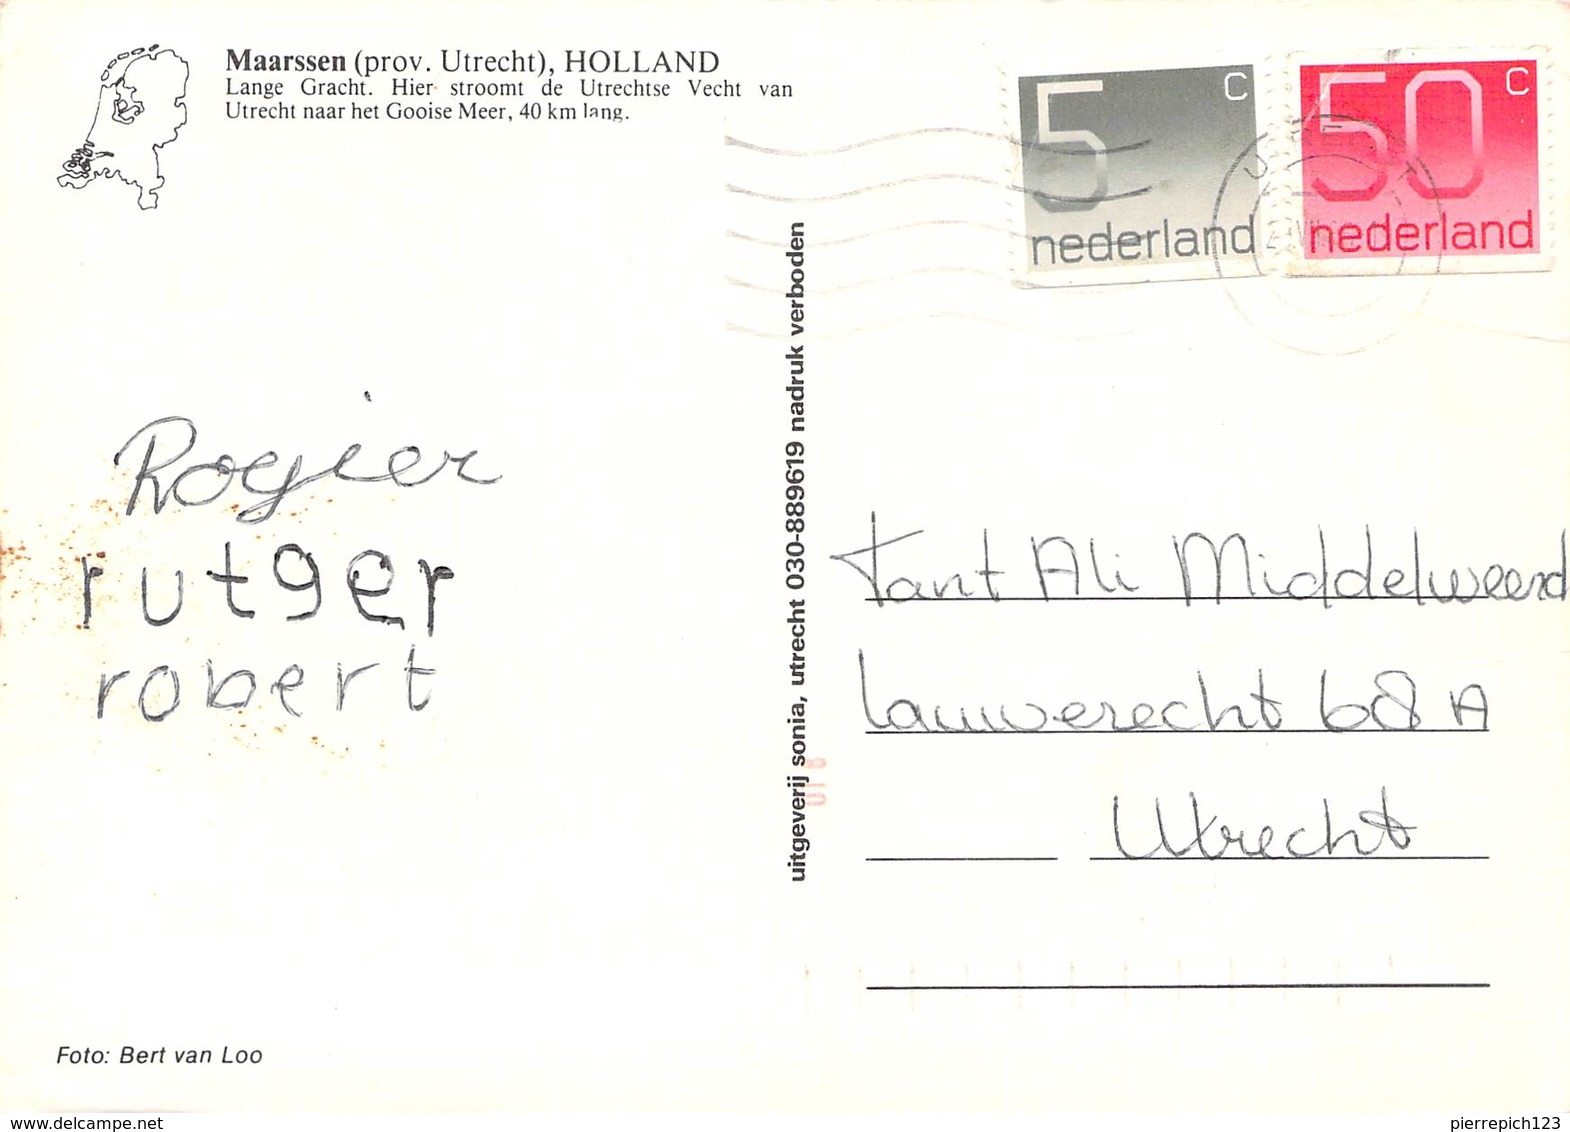 Maarssen (prov. Utrecht), HOLLAND
Lange Gracht. Hier stroomt de Utrechtse Vecht van
Utrecht naar het Gooise Meer, 40 km lang.
5 c
nederland
50 c
nederland
UTRECHT
Rogier
rutger
robert
uitgeverij sonia, utrecht 030-889619 nadruk verboden
Tant Ali Middelweerd
Lauwerecht 68 A
Utrecht
Foto: Bert van Loo
www.delcampe.net
pierrepich123